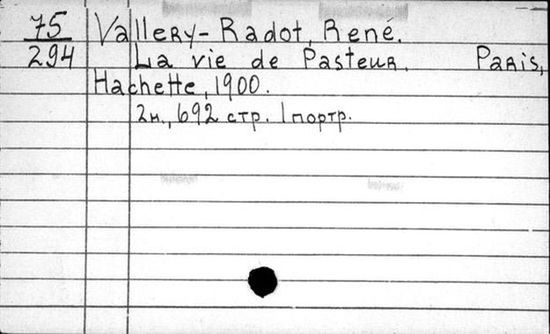 75 Vallery-Radot, René.
294 La vie de Pasteur. Paris,
Hachette, 1900.
2н., 692 стр. 1 портр.